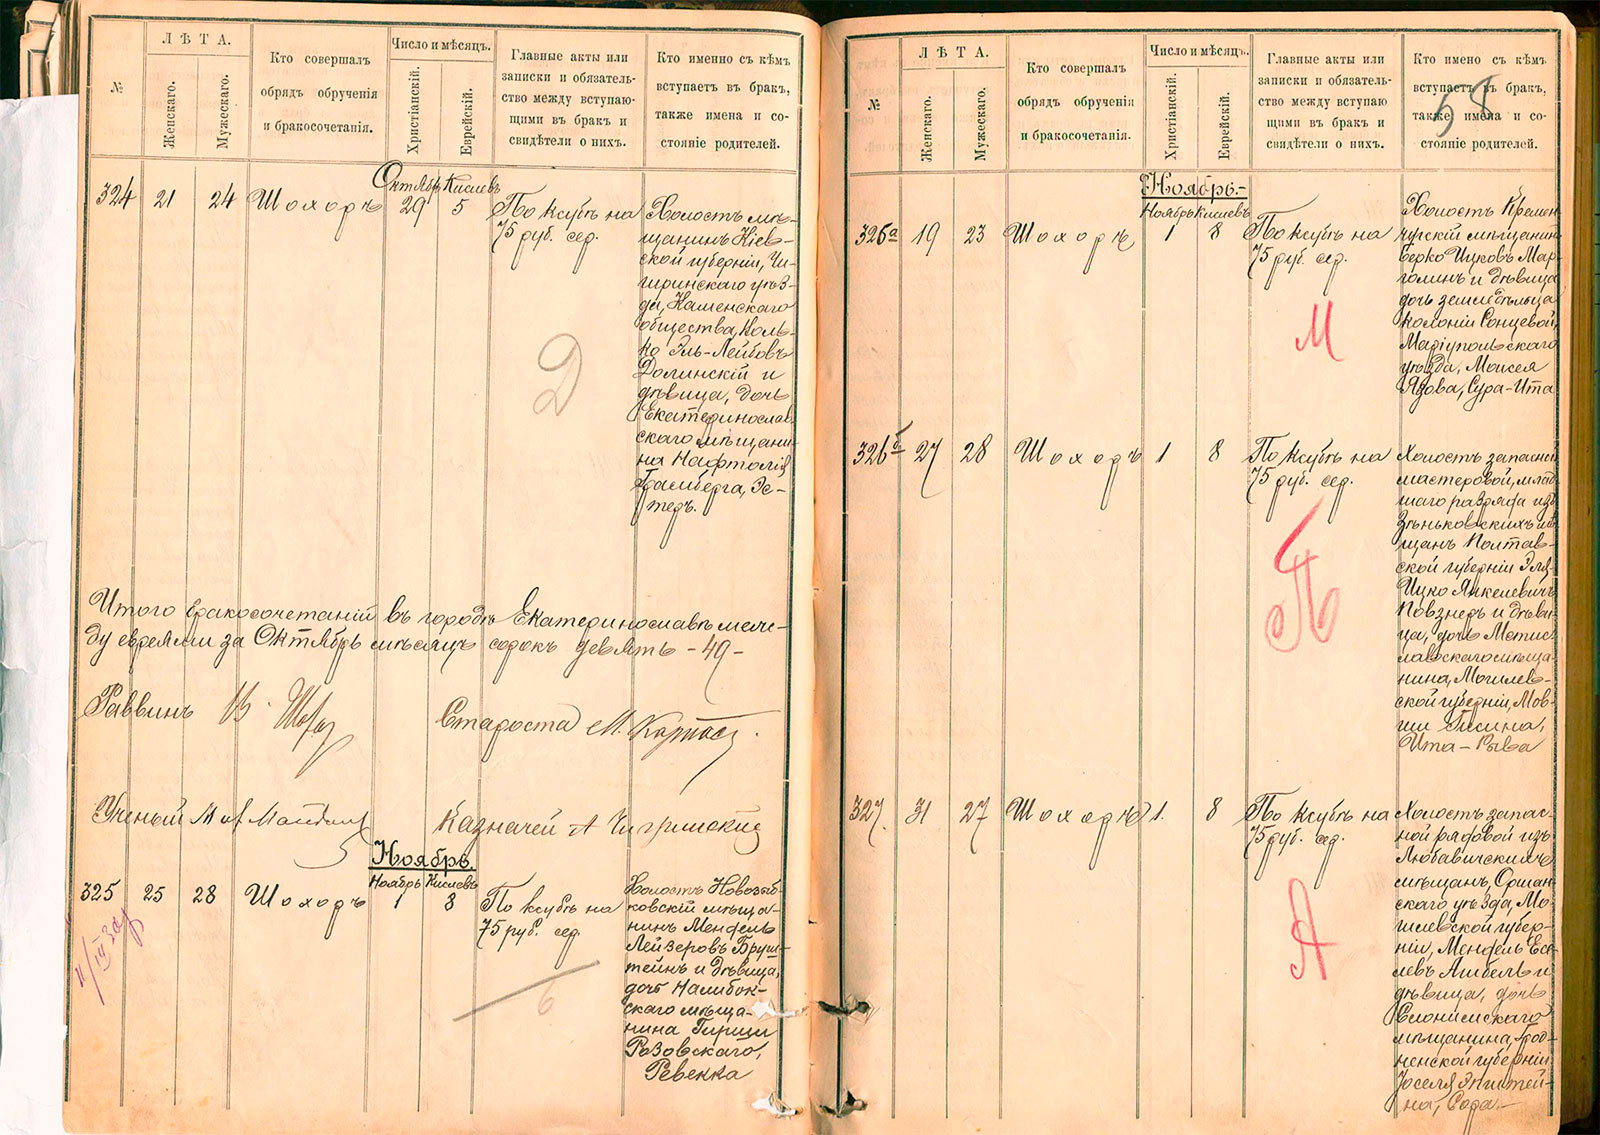 №
ЛѢТА.
Женскаго.
Мужескаго.
Кто совершалъ
обрядъ обрученія
и бракосочетанія.
Число и мѣсяцъ.
Христіанскій.
Еврейскій.
Главные акты или
записки и обязатель-
ство между вступаю-
щими въ бракъ и
свидѣтели о нихъ.
Кто именно съ кѣмъ
вступаетъ въ бракъ,
также имена и со-
стояніе родителей.
324
21
24
Шохоръ
Октябрь Кислевъ
29 5
По ксубѣ на
75 руб. сер.
Холостъ мѣ-
щанинъ Кіев-
ской губерніи, Чи-
гиринскаго уѣз-
да, Каменскаго
общества, Коль-
ко Эль-Лейбовъ
Долинскій и
дѣвица, дочь
Екатеринослав-
скаго мѣщани-
на Нафтолія
Бамберга, Эс-
теръ.
Д
Итого бракосочетаній въ городѣ Екатеринославѣ меж-
ду евреями за Октябрь мѣсяцъ сорокъ девять -49-
Раввинъ В. Шохоръ
Староста М. Карпасъ
Ученый
Казначей А Чигиринскій
Ноябрь.
Ноябрь Кислевъ
325
25
28
Шохоръ
1 8
По ксубѣ на
75 руб. сер.
Холостъ Новозыб-
ковскій мѣща-
нинъ Мендель
Лейзеровъ Бруш-
тейнъ и дѣвица,
дочь Налибок-
скаго мѣща-
нина Гирши
Розовскаго,
Ревекка
Б
№
ЛѢТА.
Женскаго.
Мужескаго.
Кто совершалъ
обрядъ обрученія
и бракосочетанія.
Число и мѣсяцъ.
Христіанскій.
Еврейскій.
Главные акты или
записки и обязатель-
ство между вступаю
щими въ бракъ и
свидѣтели о нихъ.
Кто имено съ кѣмъ
вступаетъ въ бракъ,
также имена и со-
стояніе родителей.
58
Ноябрь.-
Ноябрь Кислевъ
326а
19
23
Шохоръ
1 8
По ксубѣ на
75 руб. сер.
Холостъ Кремен-
чугскій мѣщанинъ
Берко Ицковъ Мар-
голинъ и дѣвица
дочь земледѣльца
колоніи Сонцевой,
Маріупольскаго
уѣзда, Моисея
Язова, Сура-Ита
М
326б
27
28
Шохоръ
1 8
По ксубѣ на
75 руб. сер.
Холостъ запасной
мастеровой, млад-
шаго разряда изъ
Зѣньковскихъ мѣ-
щанъ Полтав-
ской губерніи Эля-
Ицко Янкелевичъ
Повзнеръ и дѣви-
ца, дочь Мстис-
лавскаго мѣща-
нина, Могилев-
ской губерніи, Мов-
ши Гисина,
Ита-Рыва
П
327
31
27
Шохоръ
1. 8
По ксубѣ на
75 руб. сер.
Холостъ запас-
ной рядовой изъ
Любавичскихъ
мѣщанъ, Оршан-
скаго уѣзда, Мо-
гилевской губер-
ніи, Мендель Есе-
левъ Ашбель и
дѣвица, дочь
Слонимскаго
мѣщанина, Грод-
ненской губерніи
Іоселя Эпштей-
на, Сора.-
А